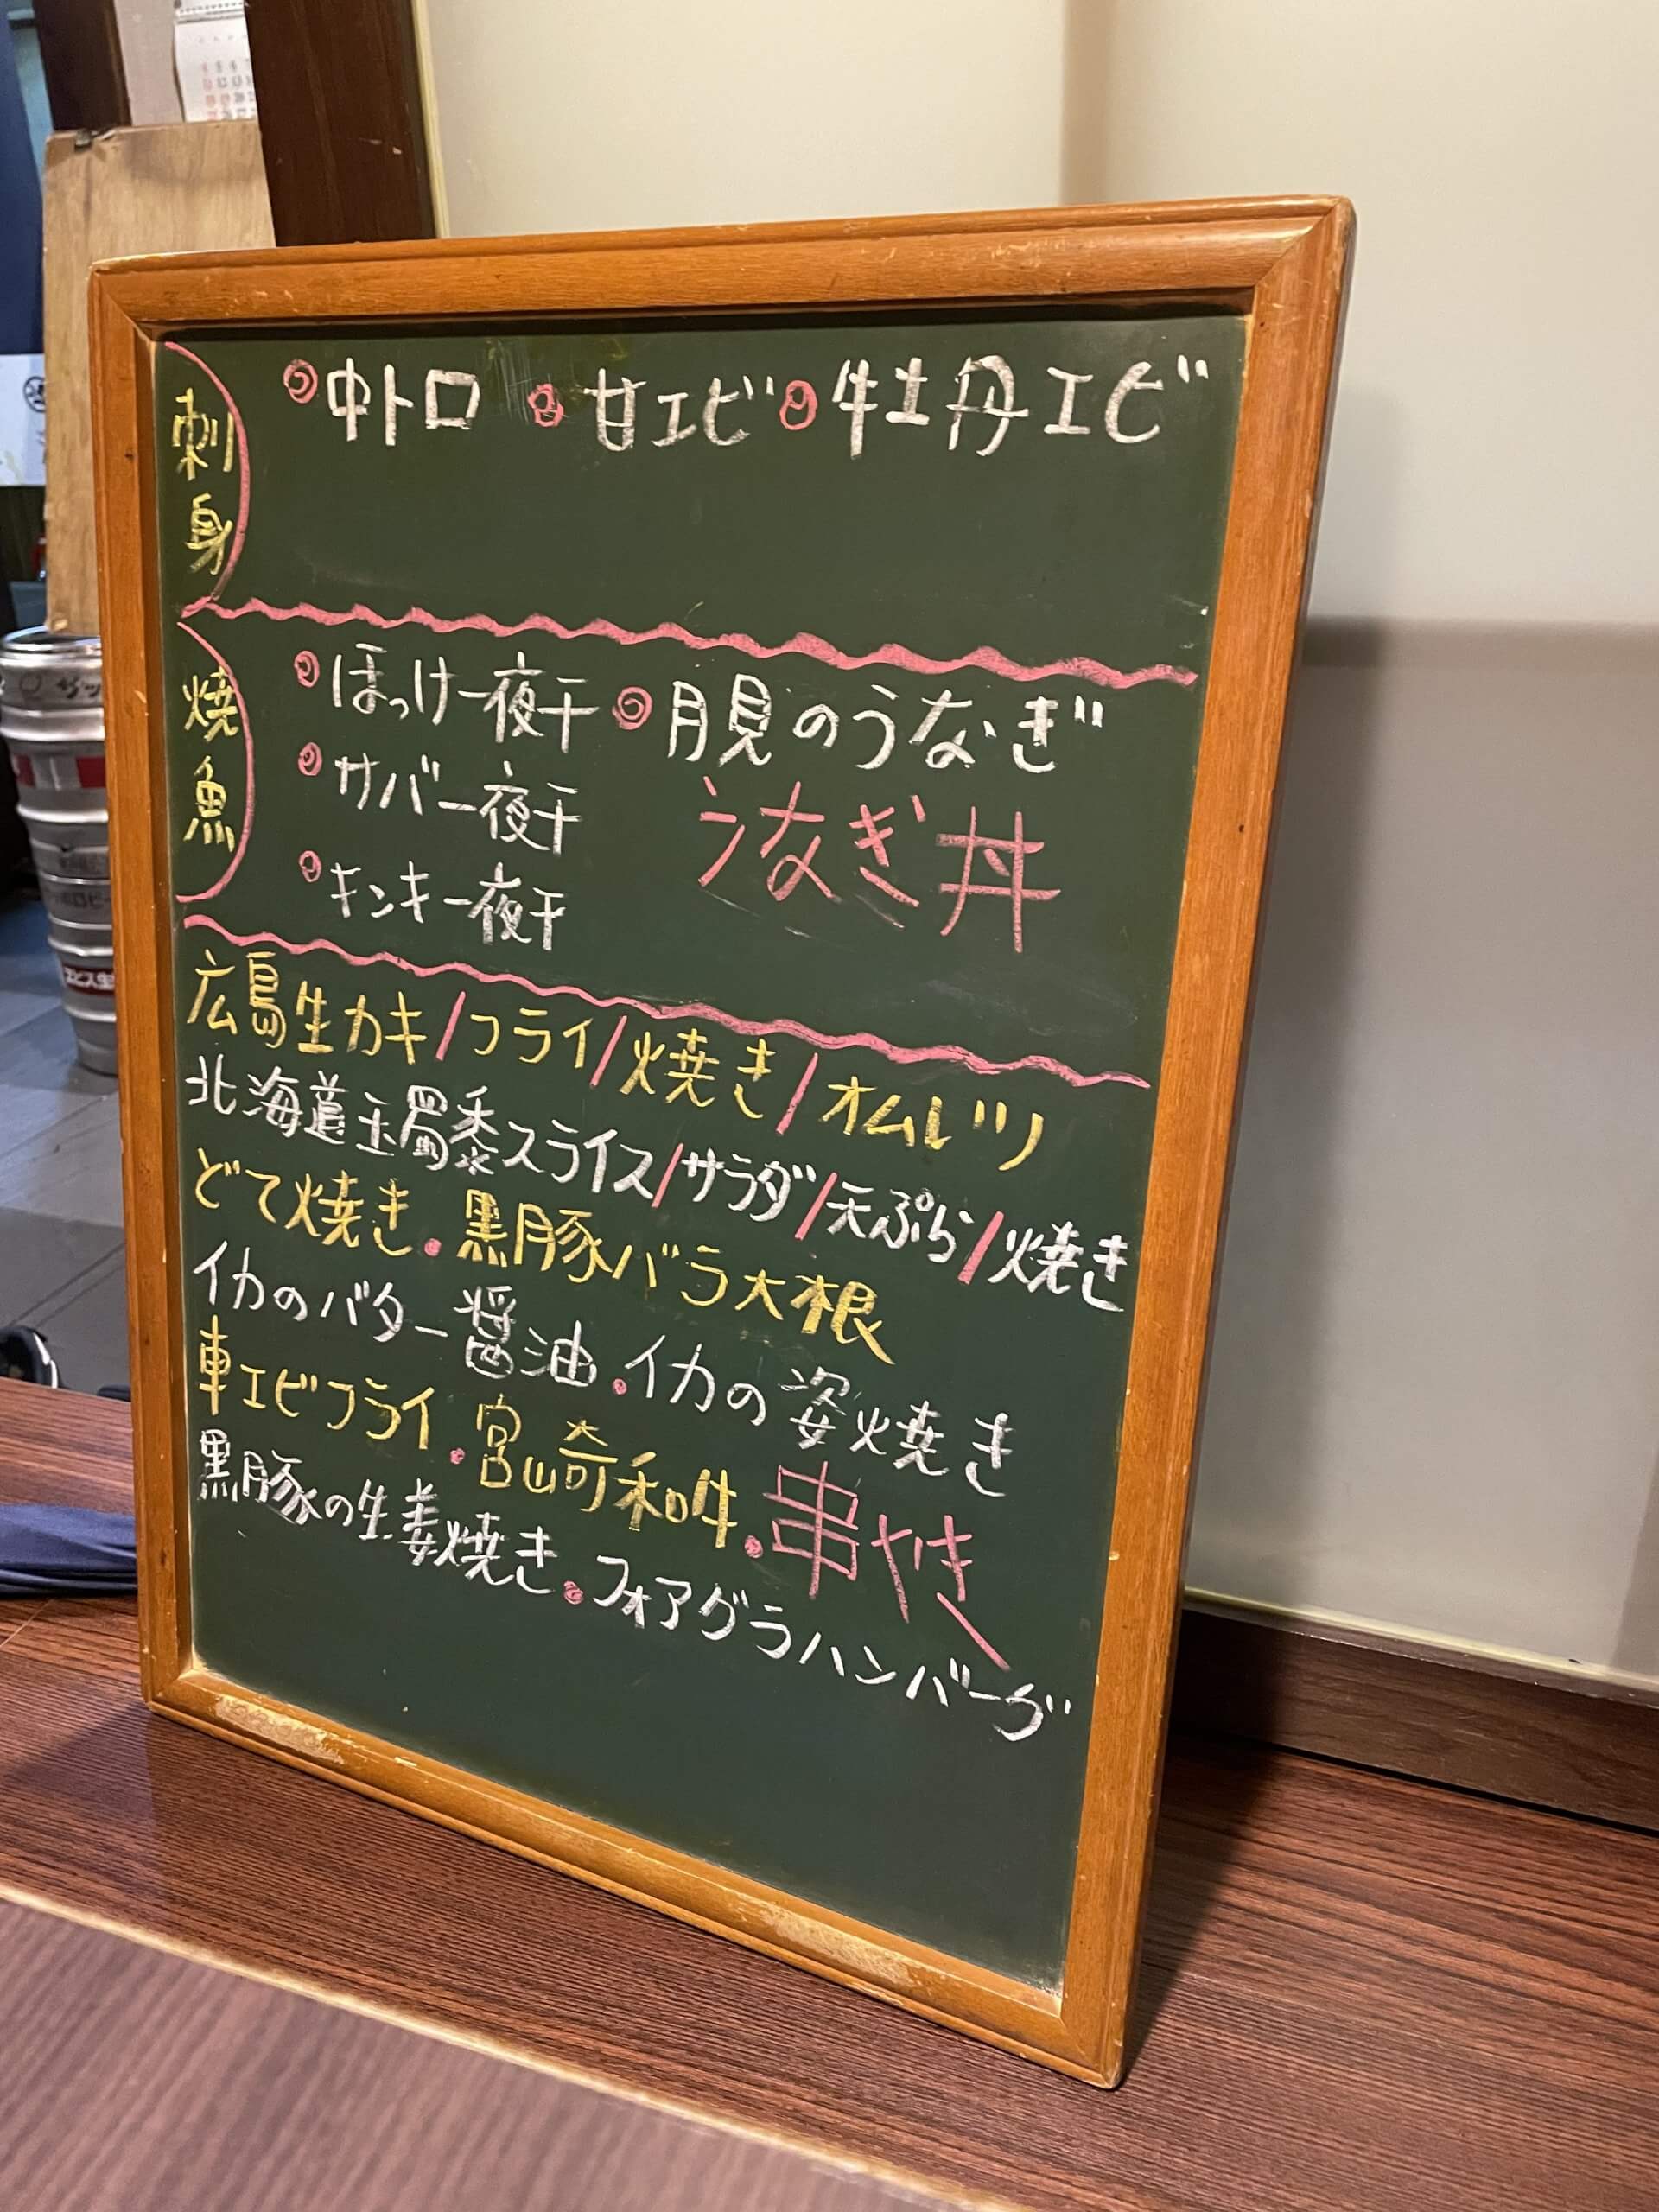 刺身
中トロ 甘エビ 牡丹エビ
焼魚
ほっけ一夜干 月見のうなぎ
サバ一夜干 うなぎ丼
キンキ一夜干
広島生カキ/フライ/焼き/オムレツ
北海道玉蜀黍スライス/サラダ/天ぷら/焼き
どて焼き・黒豚バラ大根
イカのバター醤油・イカの姿焼き
車エビフライ・宮崎和牛・串やき
黒豚の生姜焼き・フォアグラハンバーグ